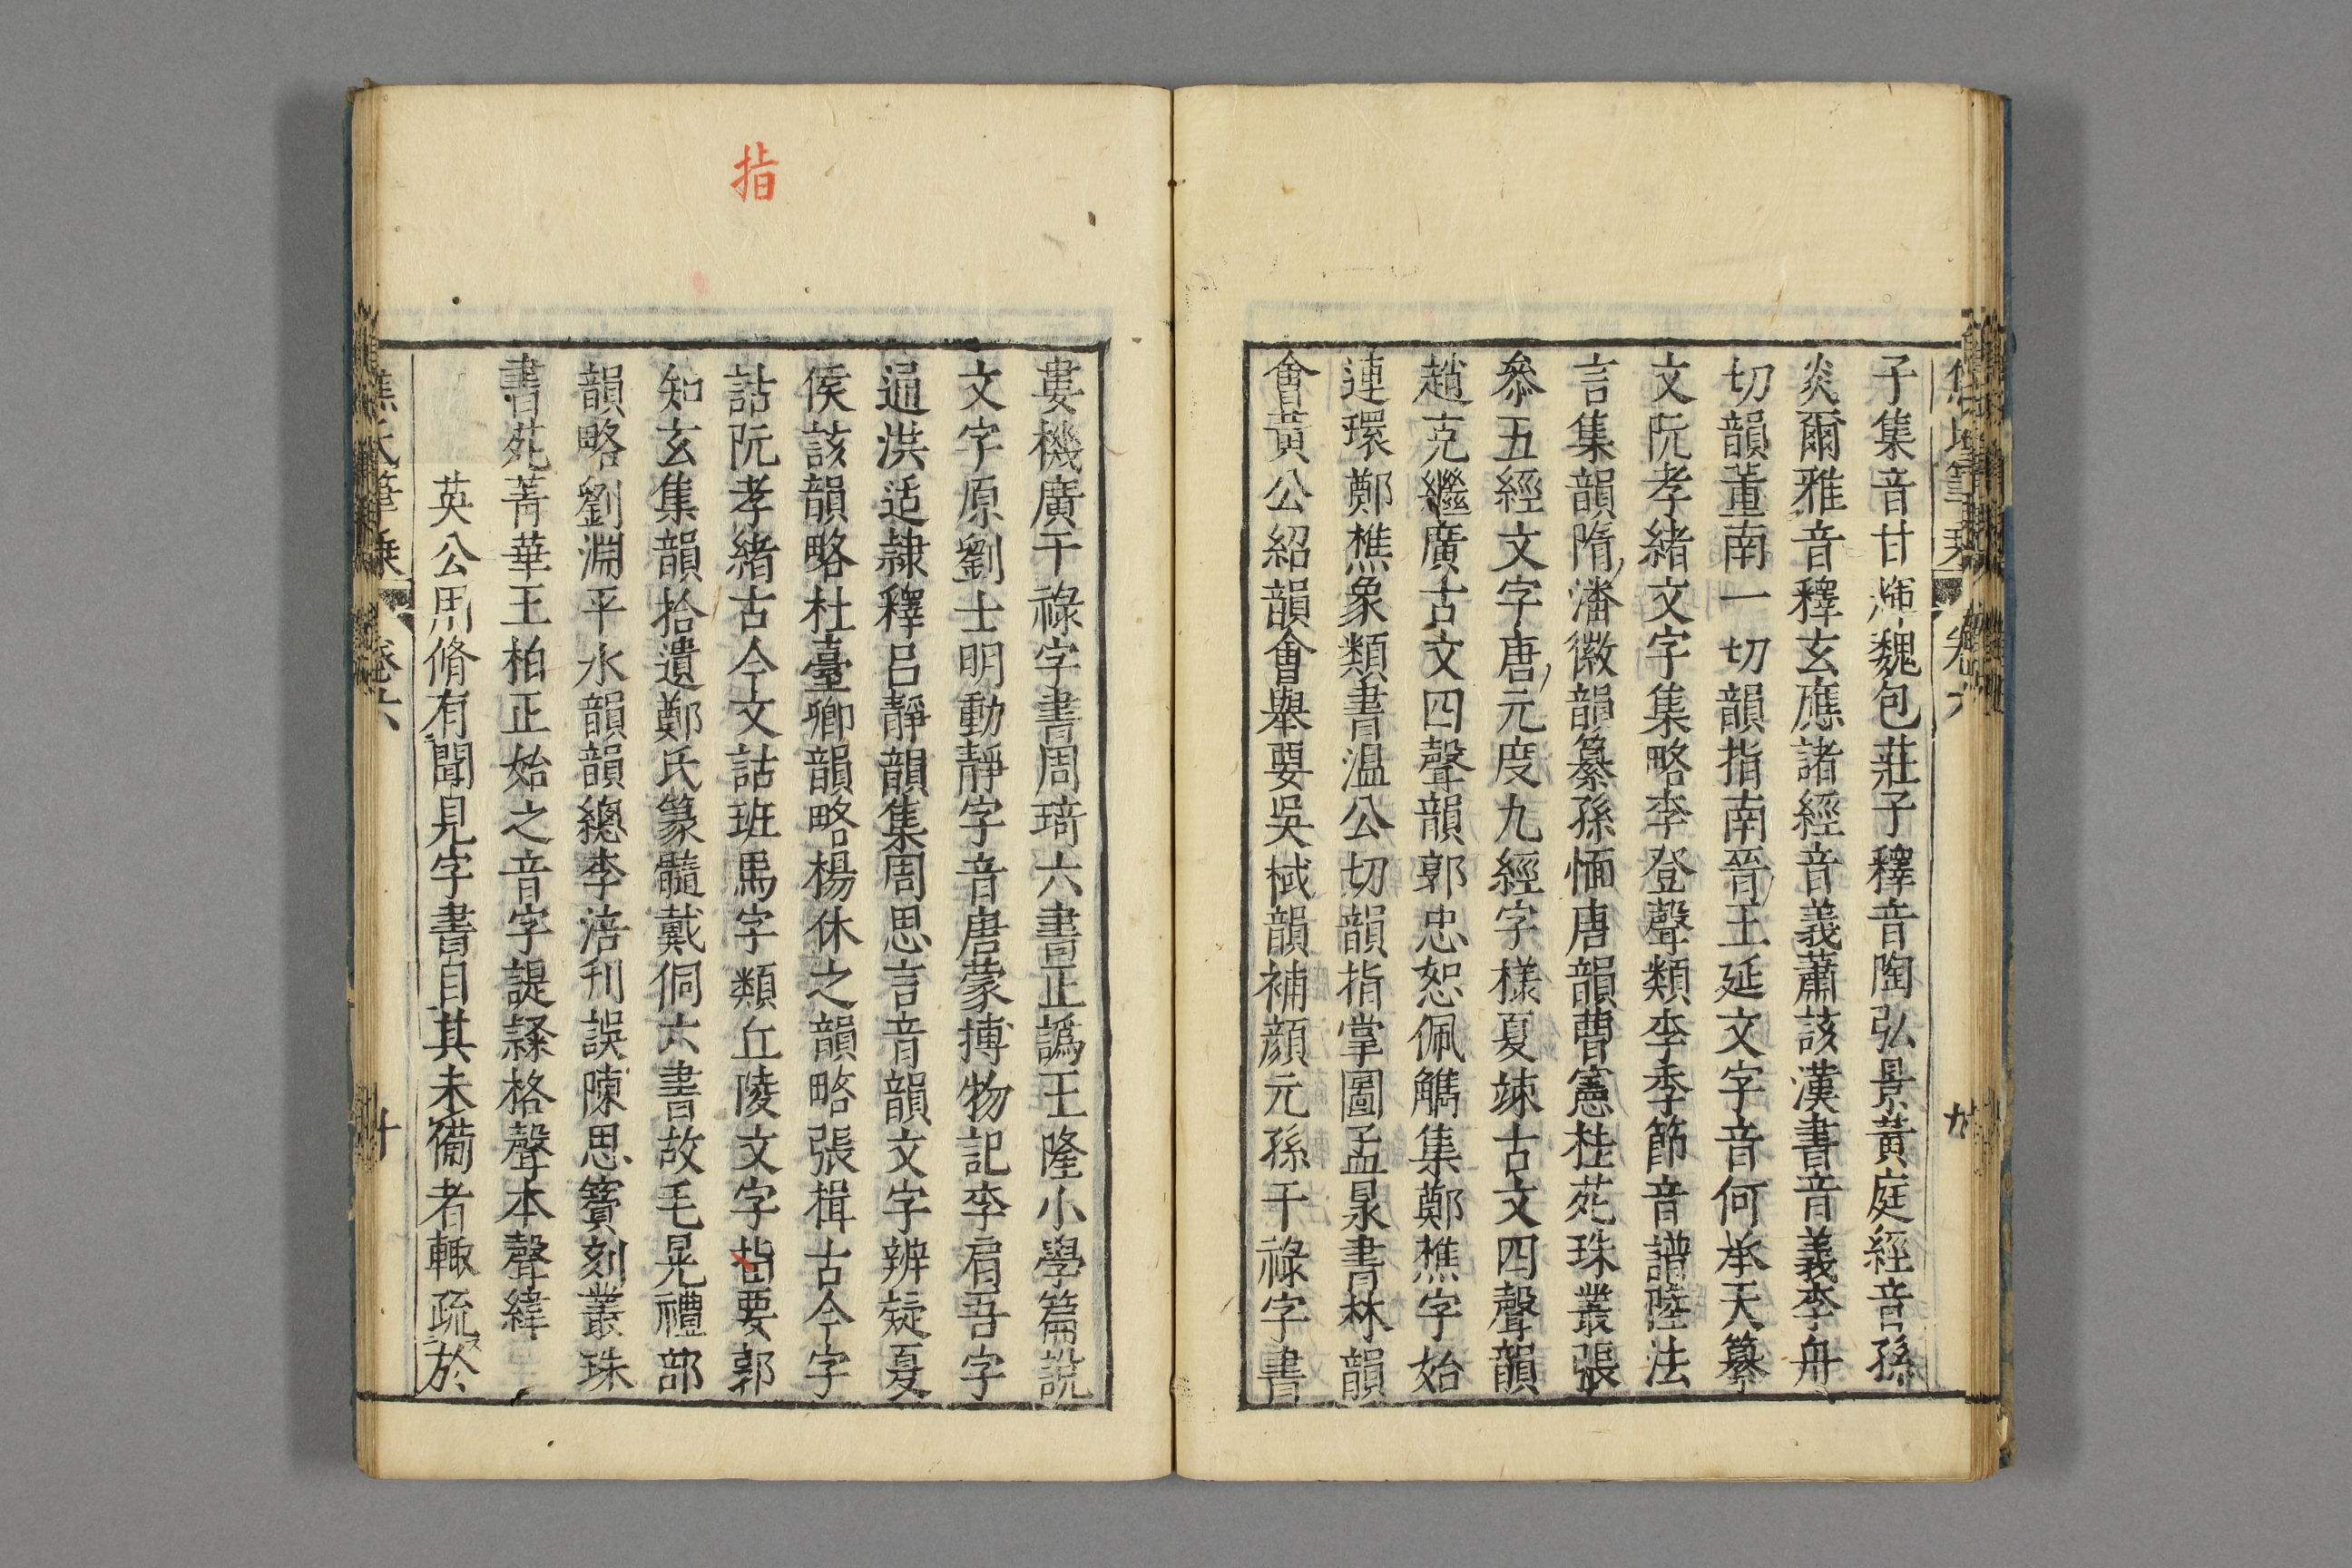 子集音甘煇魏包莊子釋音陶弘景黃庭經音孫
炎爾雅音釋玄應諸經音義蕭該漢書音義李舟
切韻董南一切韻指南晉王延文字音何承天纂
文阮孝緒文字集略李登聲類李季節音譜陸法
言集韻隋潘徽韻纂孫愐唐韻曹憲桂苑珠叢張
參五經文字唐元度九經字樣夏竦古文四聲韻
趙克繼廣古文四聲韻郭忠恕佩觿集鄭樵字始
連環鄭樵象類書溫公切韻指掌圖孟㫤書林韻
會黃公紹韻會舉要吳棫韻補顏元孫干祿字書
婁機廣干祿字書周琦六書正譌王隆小學篇說
文字原劉士明動靜字音唐蒙博物記李肩吾字
通洪适隸釋呂靜韻集周思言音韻文字辨疑夏
侯該韻略杜臺卿韻略楊休之韻略張揖古今字
詁阮孝緒古今文詁班馬字類丘陵文字指要郭
知玄集韻拾遺鄭氏篆髓戴侗六書故毛晃禮部
韻略劉淵平水韻韻總李涪刊誤陳思寶刻叢珠
書苑菁華王柏正始之音字諟䜌格聲本聲緯
英公用脩有聞見字書目其未備者輒疏於
焦氏筆乘 卷六 廿
指